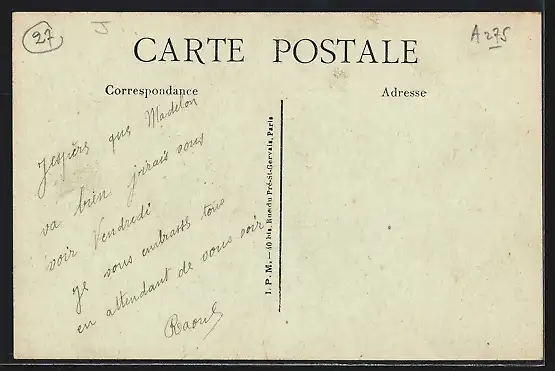 27
J
A 275
CARTE POSTALE
Correspondance
Adresse
J'espère que Madelon
va bien j'irais vous
voir Vendredi
Je vous embrasse tous
en attendant de vous voir
Raoul
I. P. M. — 40 bis, Rue du Pré-St-Gervais, Paris